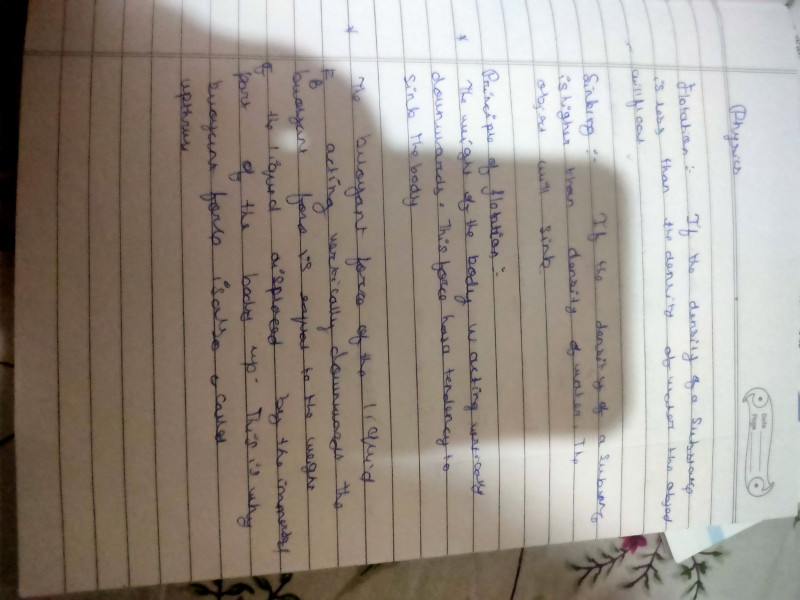 Date
Page
Physics
Flotation :- If the density of a substance
is less than the density of water the object
will float
Sinking :- If the density of a substanc
is higher than density of water. The
object will sink
Principle of flotation :-
* The weight of the body w acting vertically
downwards. This force has a tendency to
sink the body
* The buoyant force of the liquid
FB acting vertically downwards the
buoyant force is equal to the weight
of the liquid displaced by the immersed
part of the body up. This is why
buoyant force is also called
upthrus